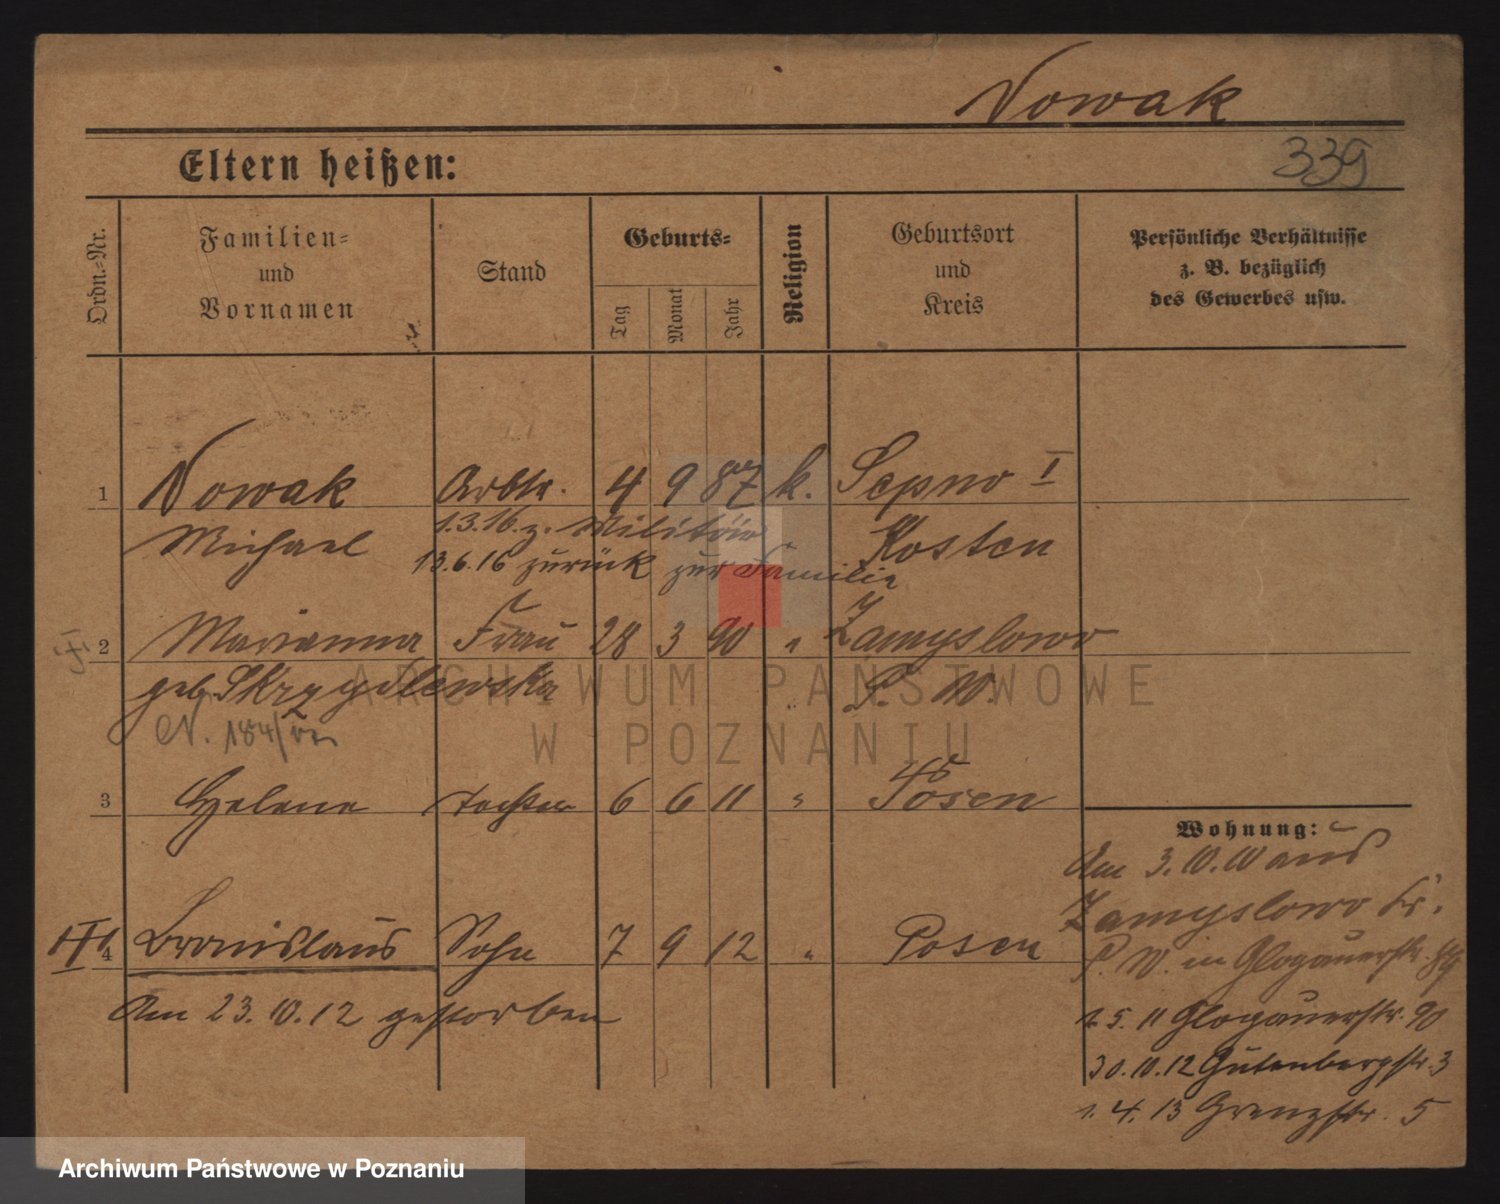 Nowak
Eltern heißen:
339
Ordn.-Nr.
Familien-
und
Vornamen
Stand
Geburts-
Tag
Monat
Jahr
Religion
Geburtsort
und
Kreis
Persönliche Verhältnisse
z. B. bezüglich
des Gewerbes usw.
1 Nowak Arbtr. 4 9 87 k. Sepno I
Michael 1.3.16 z. Militär Kosten
13.6.16 zurück zur Familie
2 Marianna Frau 28 3 90 " Zamyslowo
geb. Skrzypilewska P. W.
N. 184/
3 Helene Tochter 6 6 11 " Posen
Wohnung:
Am 3.10.10 aus
Zamyslowo Kr.
4 Bronislaus Sohn 7 9 12 " Posen
P. W. in Glogauerstr. 89
Am 23.10.12 gestorben
1.5.11 Glogauerstr. 90
30.10.12 Gutenbergstr. 3
1.4.13 Grenzstr. 5
ARCHIWUM PAŃSTWOWE
W POZNANIU
Archiwum Państwowe w Poznaniu